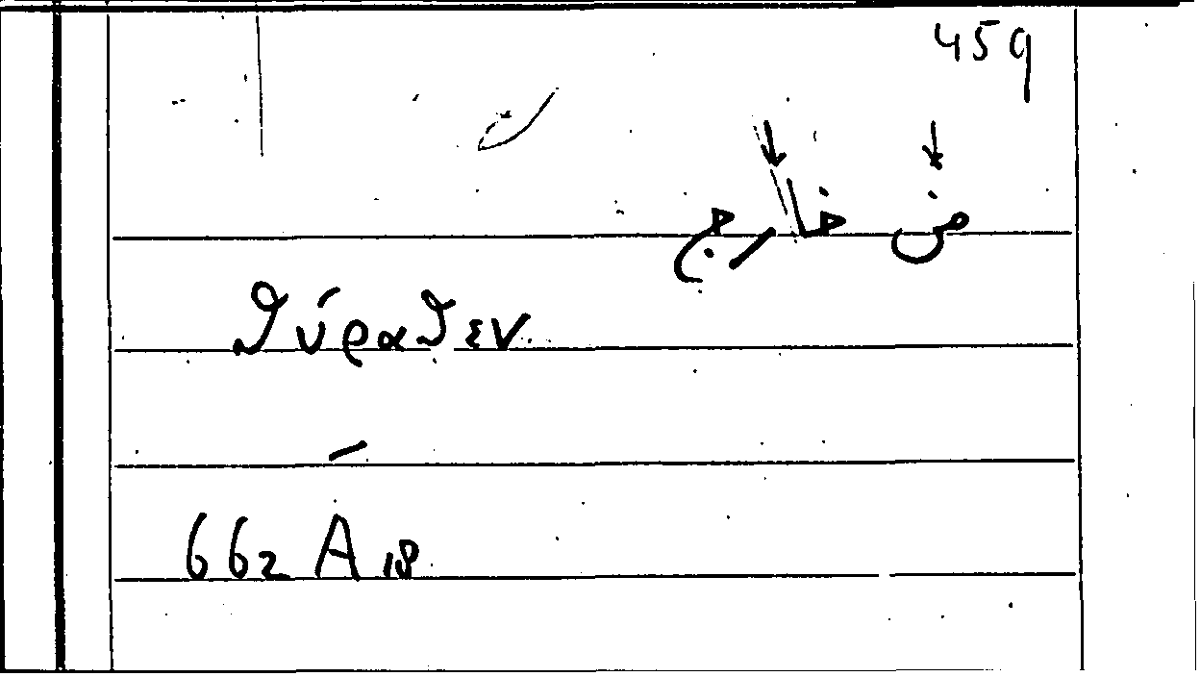 459
من خارج
θύραθεν
662 A 18